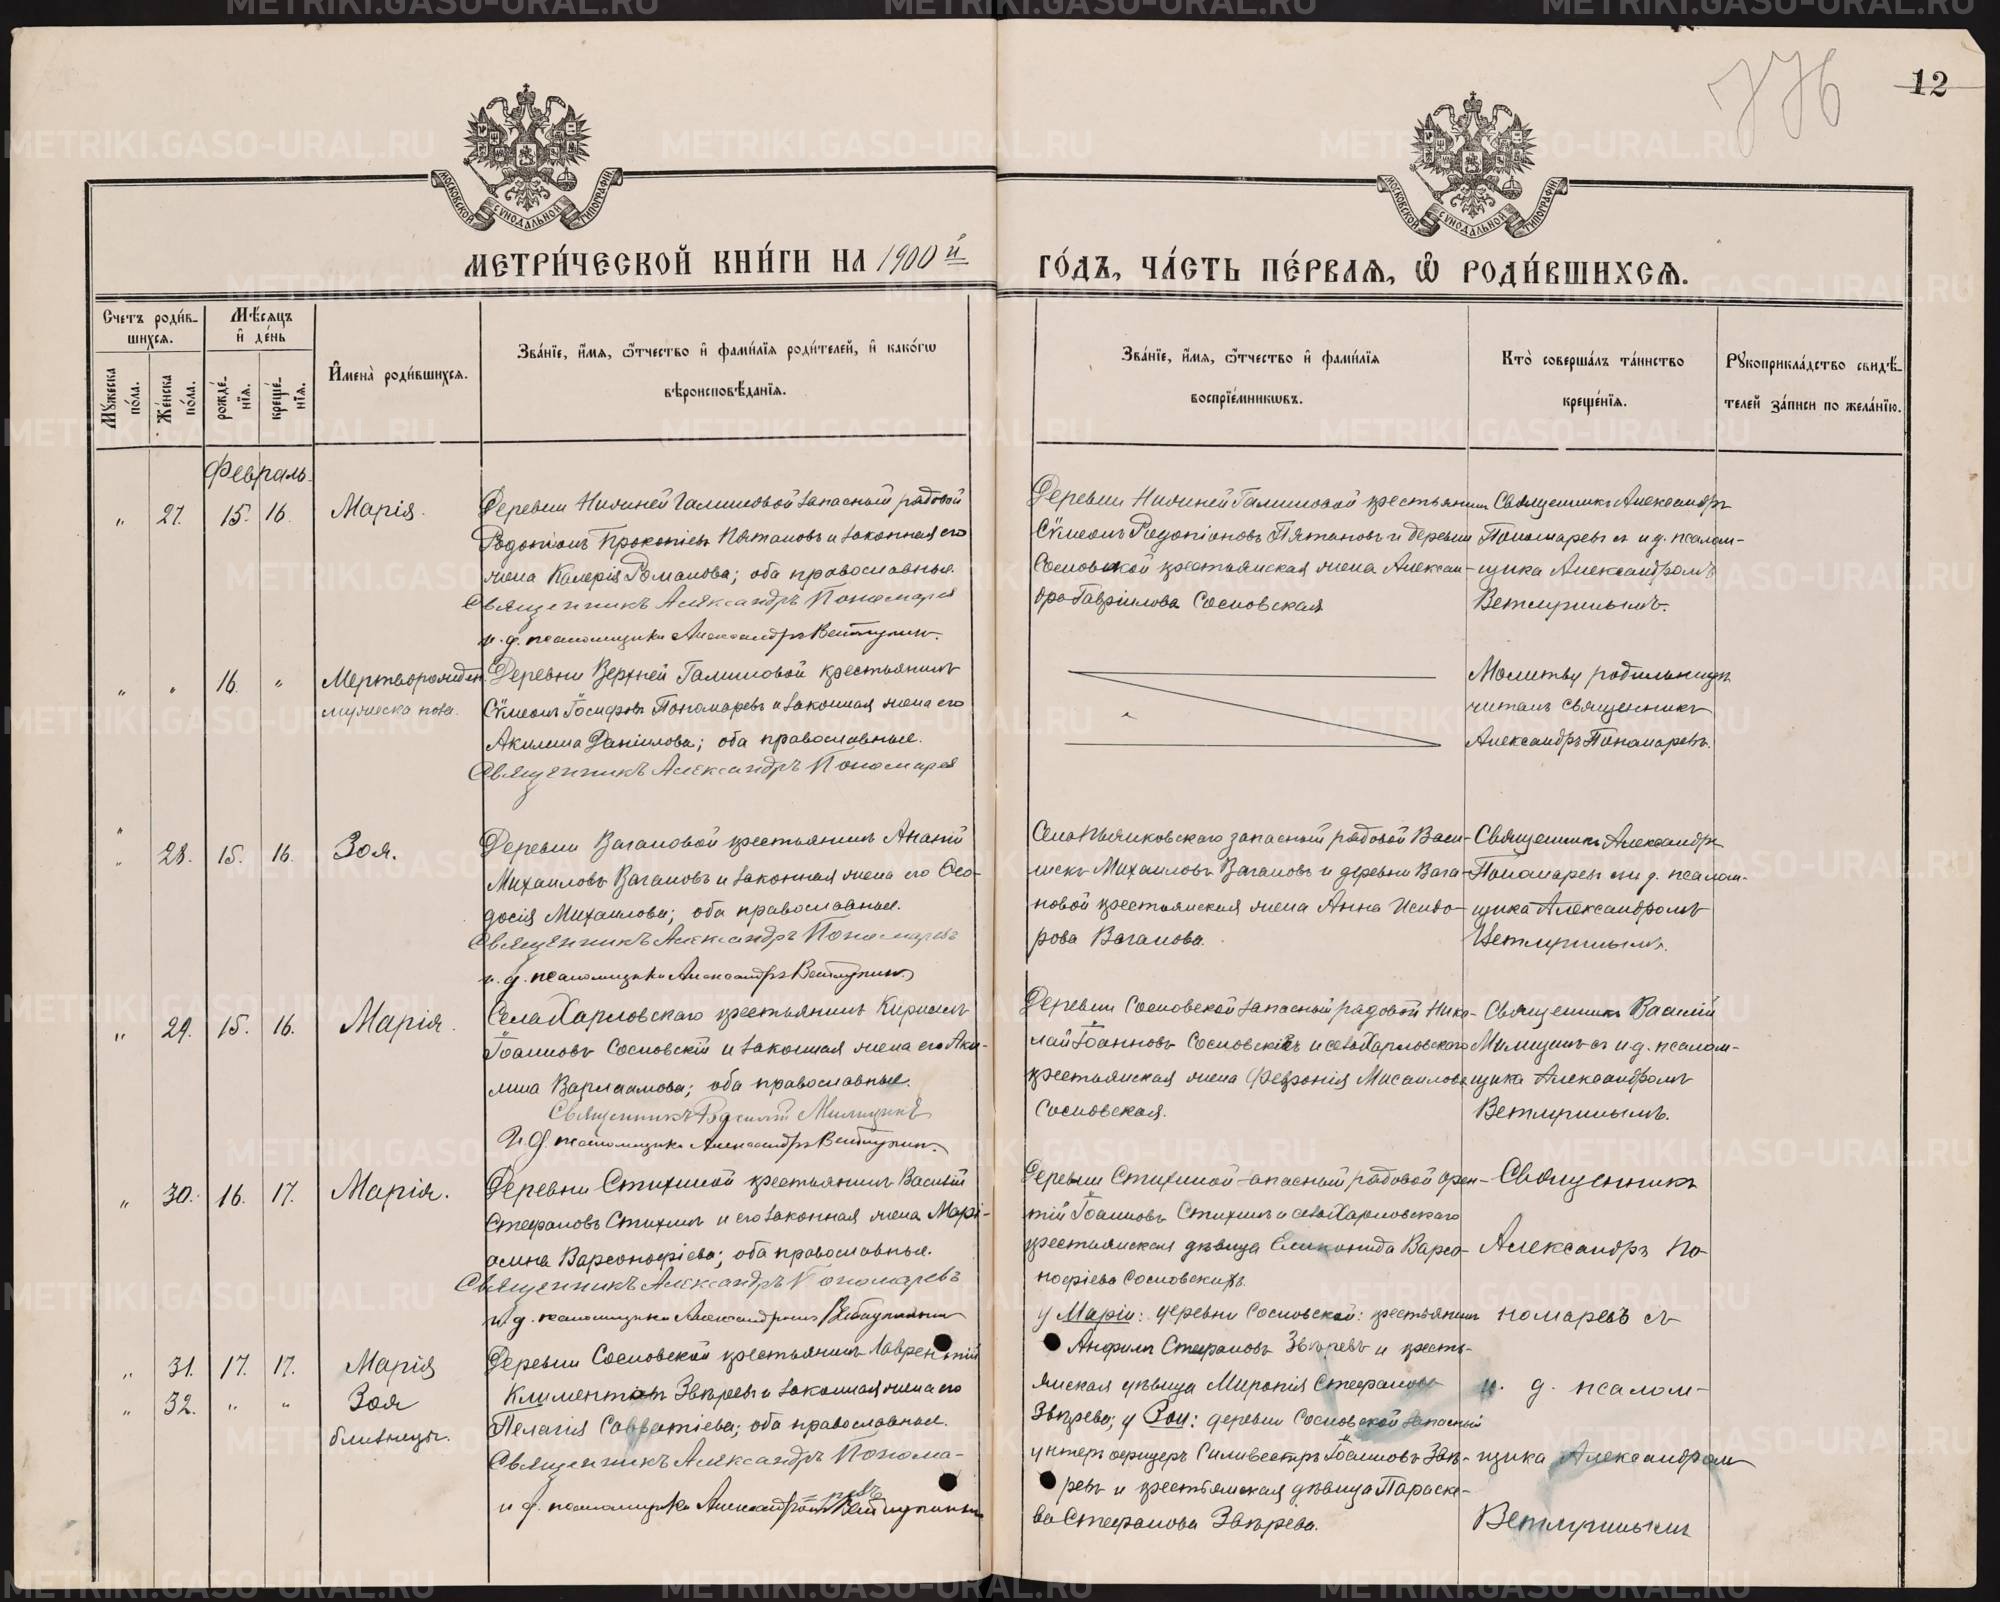 776
12
МОСКОВСКОЙ СУНОДАЛЬНОЙ ТИПОГРАФІИ
МОСКОВСКОЙ СУНОДАЛЬНОЙ ТИПОГРАФІИ
МЕТРИ́ЧЕСКОЙ КНИ́ГИ НА 1900й
ГО́ДЪ, ЧА́СТЬ ПЕ́РВАѦ, Ѽ РОДИ́ВШИХСѦ.
Счетъ роди́в-
шихсѧ.
Мѣсѧцъ
и҆ де́нь
Мꙋжеска по́ла.
Же́нска по́ла.
рожде́-нїѧ.
креще́-нїѧ.
И҆мена̀ роди́вшихсѧ.
Зва́нїе, и҆́мѧ, ѻ҆́тчество и҆ фами́лїѧ роди́телей, и҆ како́гѡ
вѣроисповѣ́данїѧ.
Зва́нїе, и҆́мѧ, ѻ҆́тчество и҆ фами́лїѧ
воспрїе́мникѡвъ.
Кто̀ соверша́лъ та́инство
креще́нїѧ.
Рꙋкоприкла́дство свидѣ́-
телей за́писи по жела́нїю.
Февраль.
" 27. 15. 16. Марія.
Деревни Нижней Галишовой запасный рядовой
Родоніонъ Прокопіевъ Пятановъ и законная его
жена Калерія Романова; оба православные.
Священникъ Александръ Пономаревъ
и. д. псаломщика Александръ Ветлугинъ.
Деревни Нижней Галишовой крестьянинъ
Сѵмеонъ Родоніоновъ Пятановъ и деревни
Сосновской крестьянская жена Алексан-
дра Гавріилова Сосновская
Священникъ Александръ
Пономаревъ съ и д. псалом-
щика Александромъ
Ветлугинымъ.
" " 16. " Мертворожден.
мужеска пола.
Деревни Верхней Галишовой крестьянинъ
Сѵмеонъ Іосифовъ Пономаревъ и законная жена его
Акилина Даніилова; оба православные.
Священникъ Александръ Пономаревъ
Молитву родильницѣ
читалъ священникъ
Александръ Пономаревъ.
" 28. 15. 16. Зоя.
Деревни Вагановой крестьянинъ Ананій
Михаиловъ Вагановъ и законная жена его Ѳео-
досія Михаилова; оба православные.
Священникъ Александръ Пономаревъ
и. д. псаломщика Александръ Ветлугинъ.
Села Пьянковскаго запасный рядовой Васи-
лискъ Михаиловъ Вагановъ и деревни Вага-
новой крестьянская жена Анна Исидо-
рова Ваганова.
Священникъ Александръ
Пономаревъ съ и д. псалом-
щика Александромъ
Ветлугинымъ.
" 29. 15. 16. Марія.
Села Харловскаго крестьянинъ Кириллъ
Іоанновъ Сосновскій и законная жена его Аки-
лина Варлаамова; оба православные.
Священникъ Василій Милицинъ
И. д. псаломщика Александръ Ветлугинъ.
Деревни Сосновской запасный рядовой Нико-
лай Іоанновъ Сосновскихъ и села Харловскаго
крестьянская жена Февронія Мисаилова
Сосновская.
Священникъ Василій
Милицинъ съ и д. псалом-
щика Александромъ
Ветлугинымъ.
" 30. 16. 17. Марія.
Деревни Стихиной крестьянинъ Василій
Стефановъ Стихинъ и его законная жена Марі-
амна Варсонофіева; оба православные.
Священникъ Александръ Пономаревъ
и д. псаломщика Александръ Ветлугинъ
Деревни Стихиной запасный рядовой
Іоанновъ Стихинъ и села Харловскаго
крестьянская дѣвица Еликонида Варсо-
нофіева Сосновскихъ.
Священникъ
Александръ По-
номаревъ съ
и. д. псалом-
щика Александром
Ветлугинымъ
" 31. 17. 17. Марія
" 32. " " Зоя
близнецы.
Деревни Сосновской крестьянинъ Лаврентій
Климентовъ Звѣревъ и законная жена его
Пелагія Савватіева; оба православные.
Священникъ Александръ Понома-
=ревъ
и д. псаломщика Александръ Ветлугинъ
у Маріи: деревни Сосновской: крестьянинъ
Анфимъ Стефановъ Звѣревъ и кресть-
янская дѣвица Миропія Стефанова
Звѣрева; у Зои: деревни Сосновской запасный
унтеръ офицеръ Силивестръ Іоанновъ Звѣ-
ревъ и крестьянская дѣвица Параске-
ва Стефанова Звѣрева.
METRIKI.GASO-URAL.RU